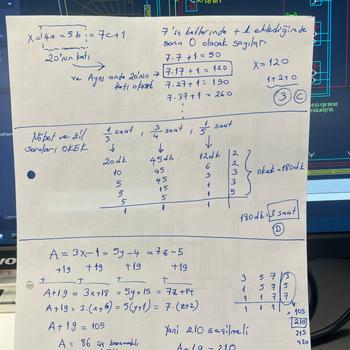 X = 4a = 5b = 7c+1
20'nin katı
ve Aynı anda 20'nin katı olacak
7'nin katlarında +1 eklediğimde
sonu 0 olacak sayılar
7.7+1=50
7.17+1=120
7.27+1=190
7.37+1=260
X=120
1+2+0
3 C
Nöbet ve zil
soruları OKEK
1/3 saat, 3/4 saat, 1/5 saat
20dk 45dk 12dk 2
10 45 6 2
5 45 3 3
5 15 1 3
5 5 1 5
1 1 1
okek=180dk
180dk=3 saat
D
A = 3x-1 = 5y-4 = 7z-5
+19 +19 +19 +19
A+19 = 3x+18 = 5y+15 = 7z+14
A+19 = 3.(x+6) = 5(y+1) = 7.(z+2)
3 5 7 3
1 5 7 5
1 1 7 7
1 1 1
105
210
315
420
A+19 = 105
A = 86
Yani 210 seçilmeli
A+19=210